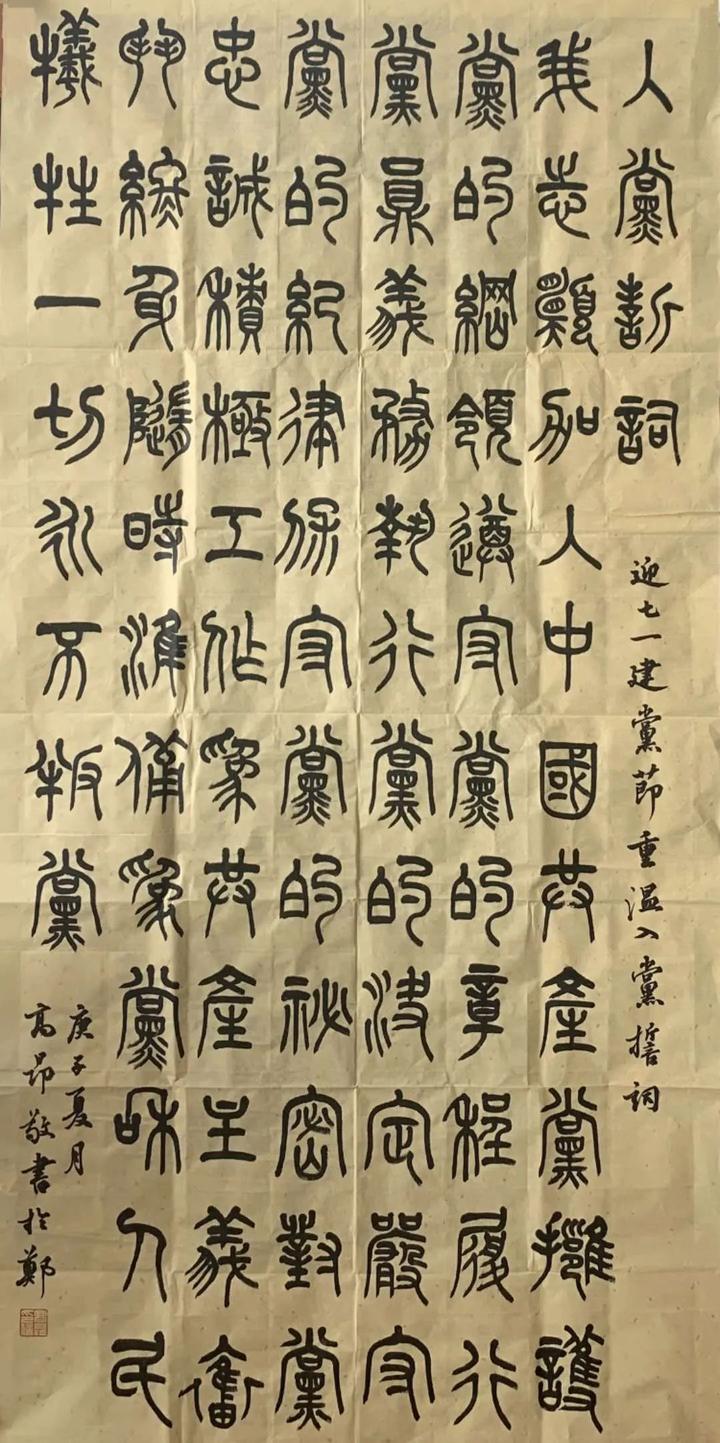 入黨誓詞
迎七一建黨節重温入黨誓詞
我志願加入中國共產黨擁護
黨的綱領遵守黨的章程履行
黨員義務執行黨的決定嚴守
黨的紀律保守黨的祕密對黨
忠誠積極工作為共產主義奮
鬥終身隨時準備為黨和人民
犧牲一切永不叛黨
庚子夏月
高昂敬書於鄭